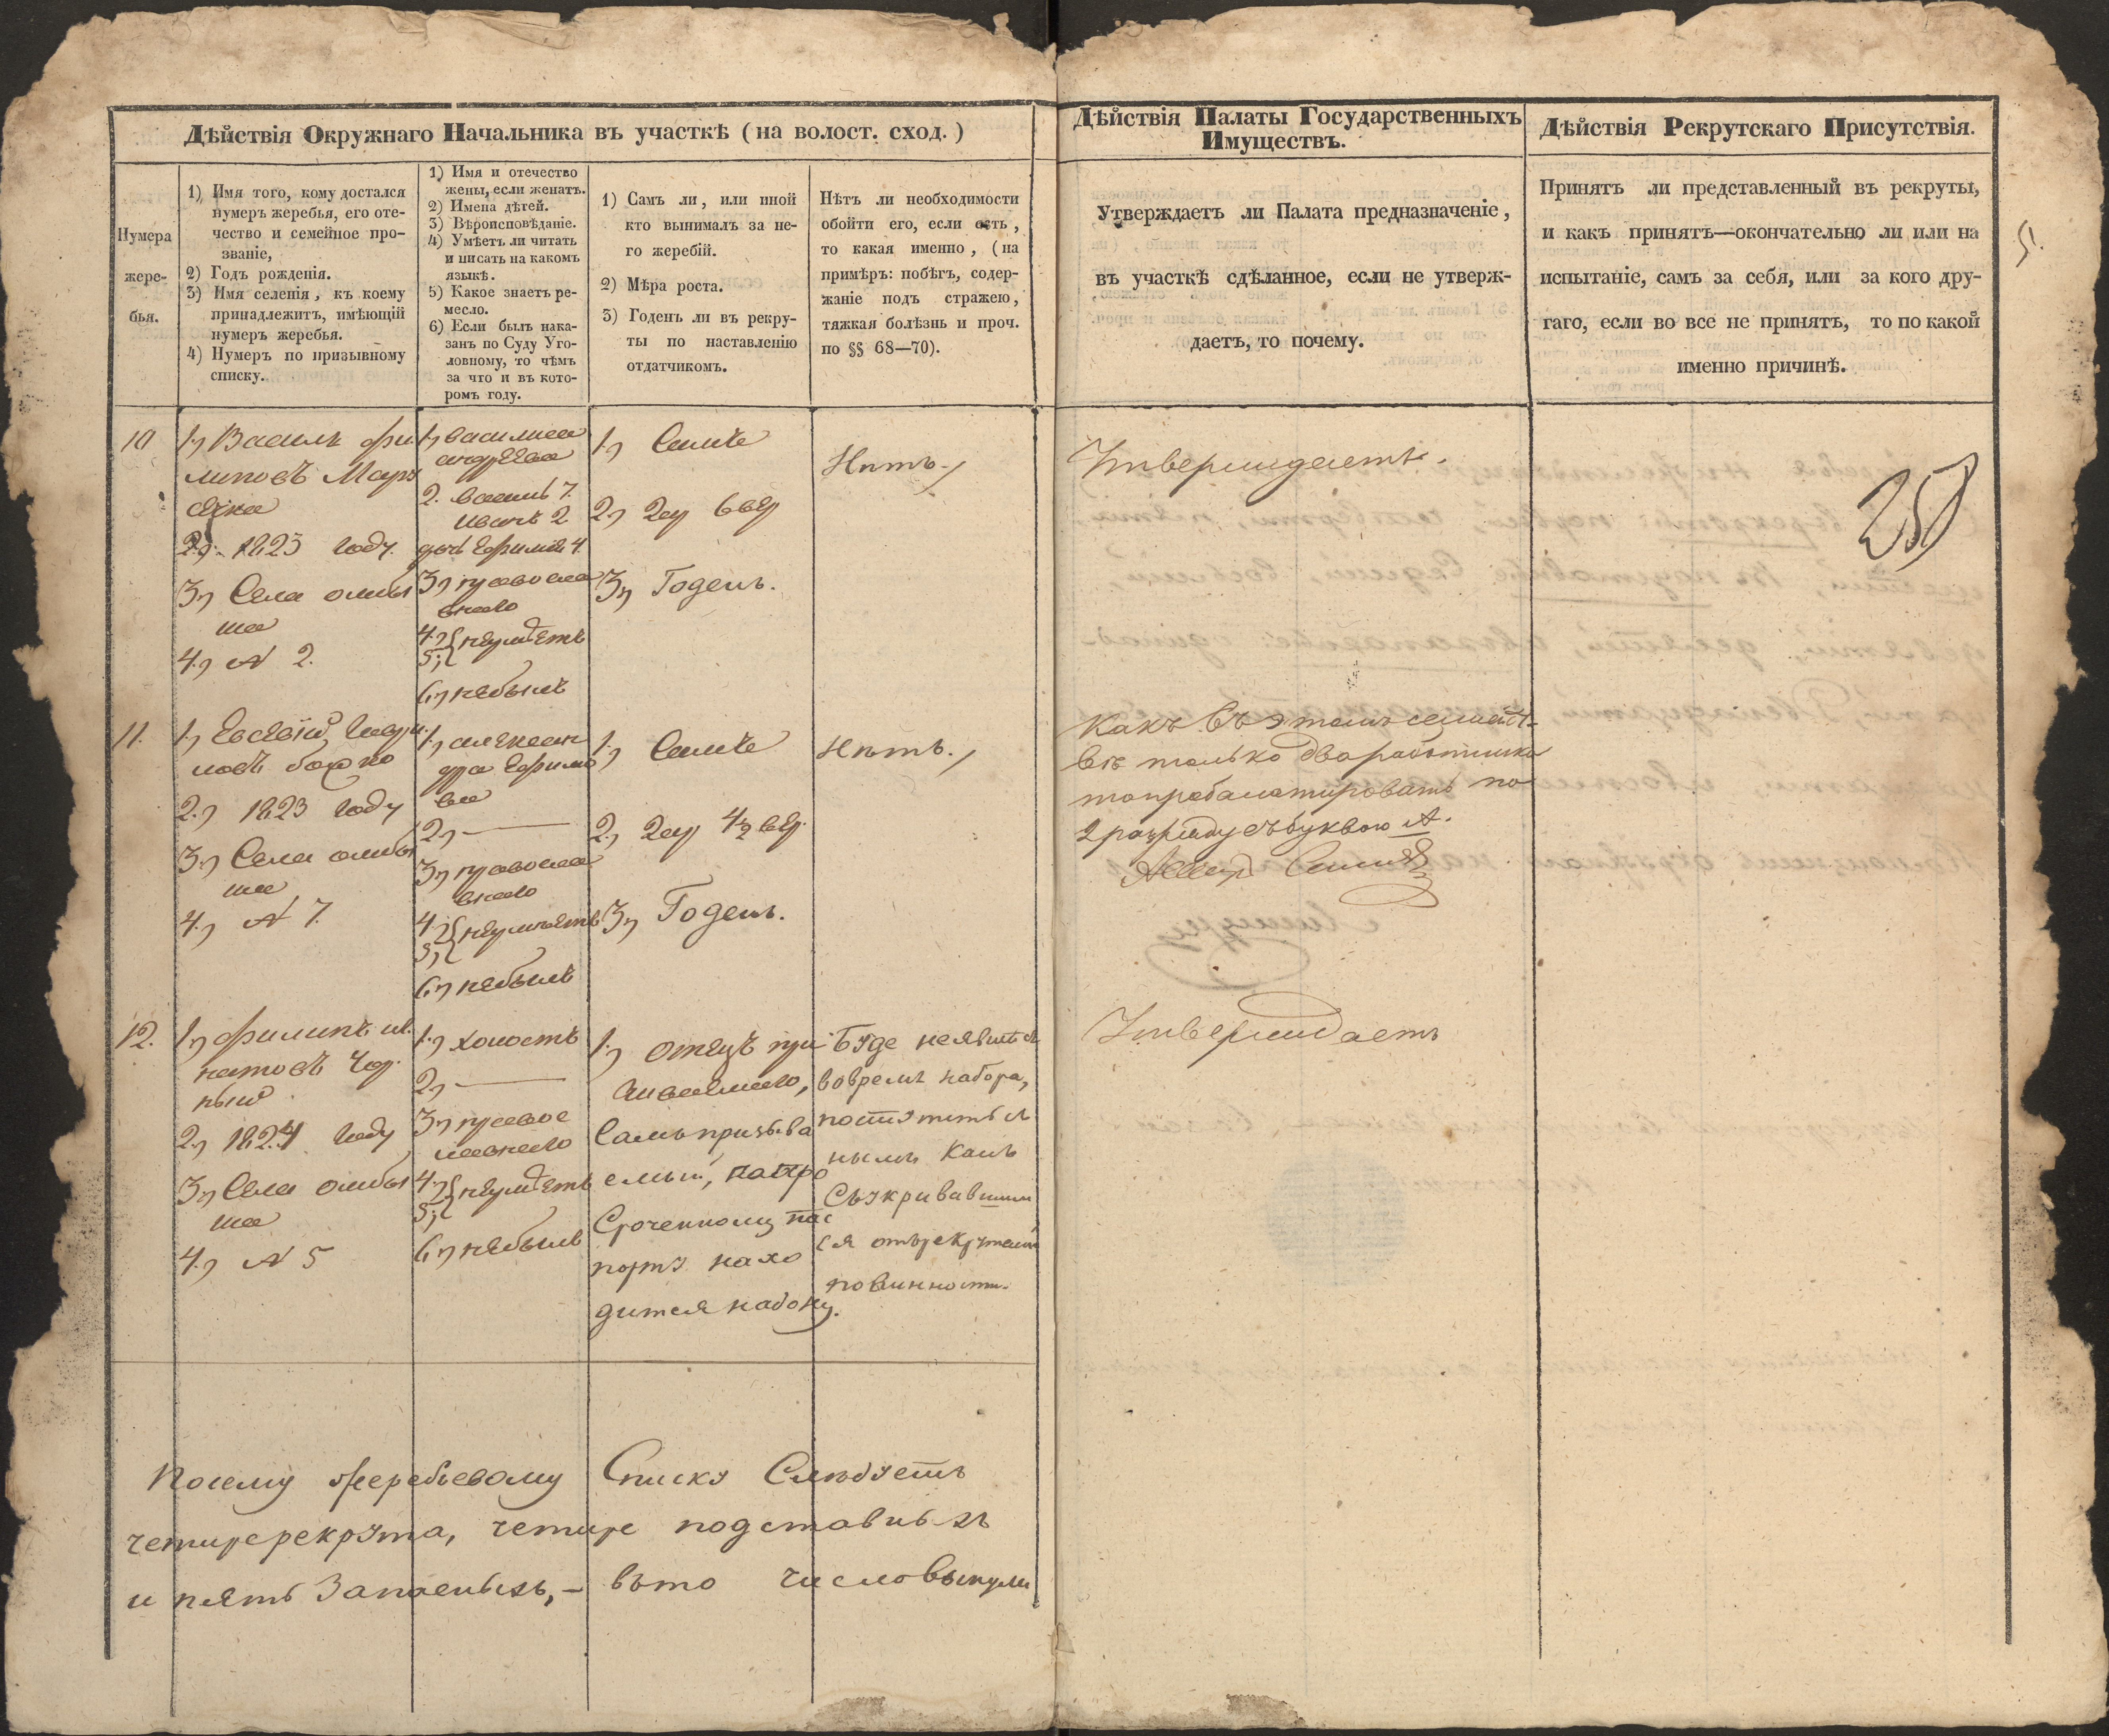 Дѣйствія Окружнаго Начальника въ участкѣ (на волост. сход.)
Нумера
жере-
бья.
1) Имя того, кому достался
нумеръ жеребья, его оте-
чество и семейное про-
званіе,
2) Годъ рожденія.
3) Имя селенія, къ коему
принадлежитъ, имѣющій
нумеръ жеребья.
4) Нумеръ по призывному
списку.
1) Имя и отечество
жены, если женатъ.
2) Имена дѣтей.
3) Вѣроисповѣданіе.
4) Умѣетъ ли читать
и писать на какомъ
языкѣ.
5) Какое знаетъ ре-
месло.
6) Если былъ нака-
занъ по Суду Уго-
ловному, то чѣмъ
за что и въ кото-
ромъ году.
1) Самъ ли, или иной
кто вынималъ за не-
го жеребій.
2) Мѣра роста.
3) Годенъ ли въ рекру-
ты по наставленію
отдатчикомъ.
Нѣтъ ли необходимости
обойти его, если есть,
то какая именно, (на
примѣръ: побѣгъ, содер-
жаніе подъ стражею,
тяжкая болѣзнь и проч.
по §§ 68—70).
Дѣйствія Палаты Государственныхъ
Имуществъ.
Утверждаетъ ли Палата предназначеніе,
въ участкѣ сдѣланное, если не утверж-
даетъ, то почему.
Дѣйствія Рекрутскаго Присутствія.
Принятъ ли представленный въ рекруты,
и какъ принятъ—окончательно ли или на
испытаніе, самъ за себя, или за кого дру-
гаго, если во все не принятъ, то по какой
именно причинѣ.
51.
250
10
1., Василь Фи
липовъ
2., 1823 году.
3., Села
4., N 2.
1., василиса
андрѣева
2. василь 7.
иванъ 2
дочь Ефимія 4.
3., правосла
внаго
4.,
5., неумѣетъ
6., небылъ
1., Самъ
2., 2 ар 6 вер
3., Годенъ.
Нѣтъ.,
Утверждаетъ.
11.
1., Евсѣвій Гаври
ловъ
2., 1823 году
3., Села
4., N 7.
1., алексан
дра Ефимо
ва
2., —
3., правосла
внаго
4.,
5., неумѣетъ
6., небылъ
1., Самъ
2., 2 ар 4½ вер.
3., Годенъ.
Нѣтъ.,
Какъ въ этомъ семейст-
вѣ только два работника
то пребалатировать по
2 разряду съ буквою А.
12.
1., Филипъ иг.
натовъ Чор.
ный
2., 1824 году
3., Села
4., N 5
1., холостъ
2., —
3., правос
лавнаго
4.,
5., неумѣетъ
6., небылъ
1., отецъ при
Самъ призыва
емый, по про
Сроченному пас
порту нахо
дится надону.
Буде неявится
вовремя набора,
постутитьс
нымъ какъ
Съукрывавшим
ся отърекрутской
повинности.
Утверждаетъ
Посему жеребьевому Списку Слѣдуетъ
четыре рекрута, четыре подставныхъ
и пять Запасныхъ, - вьто число вынули